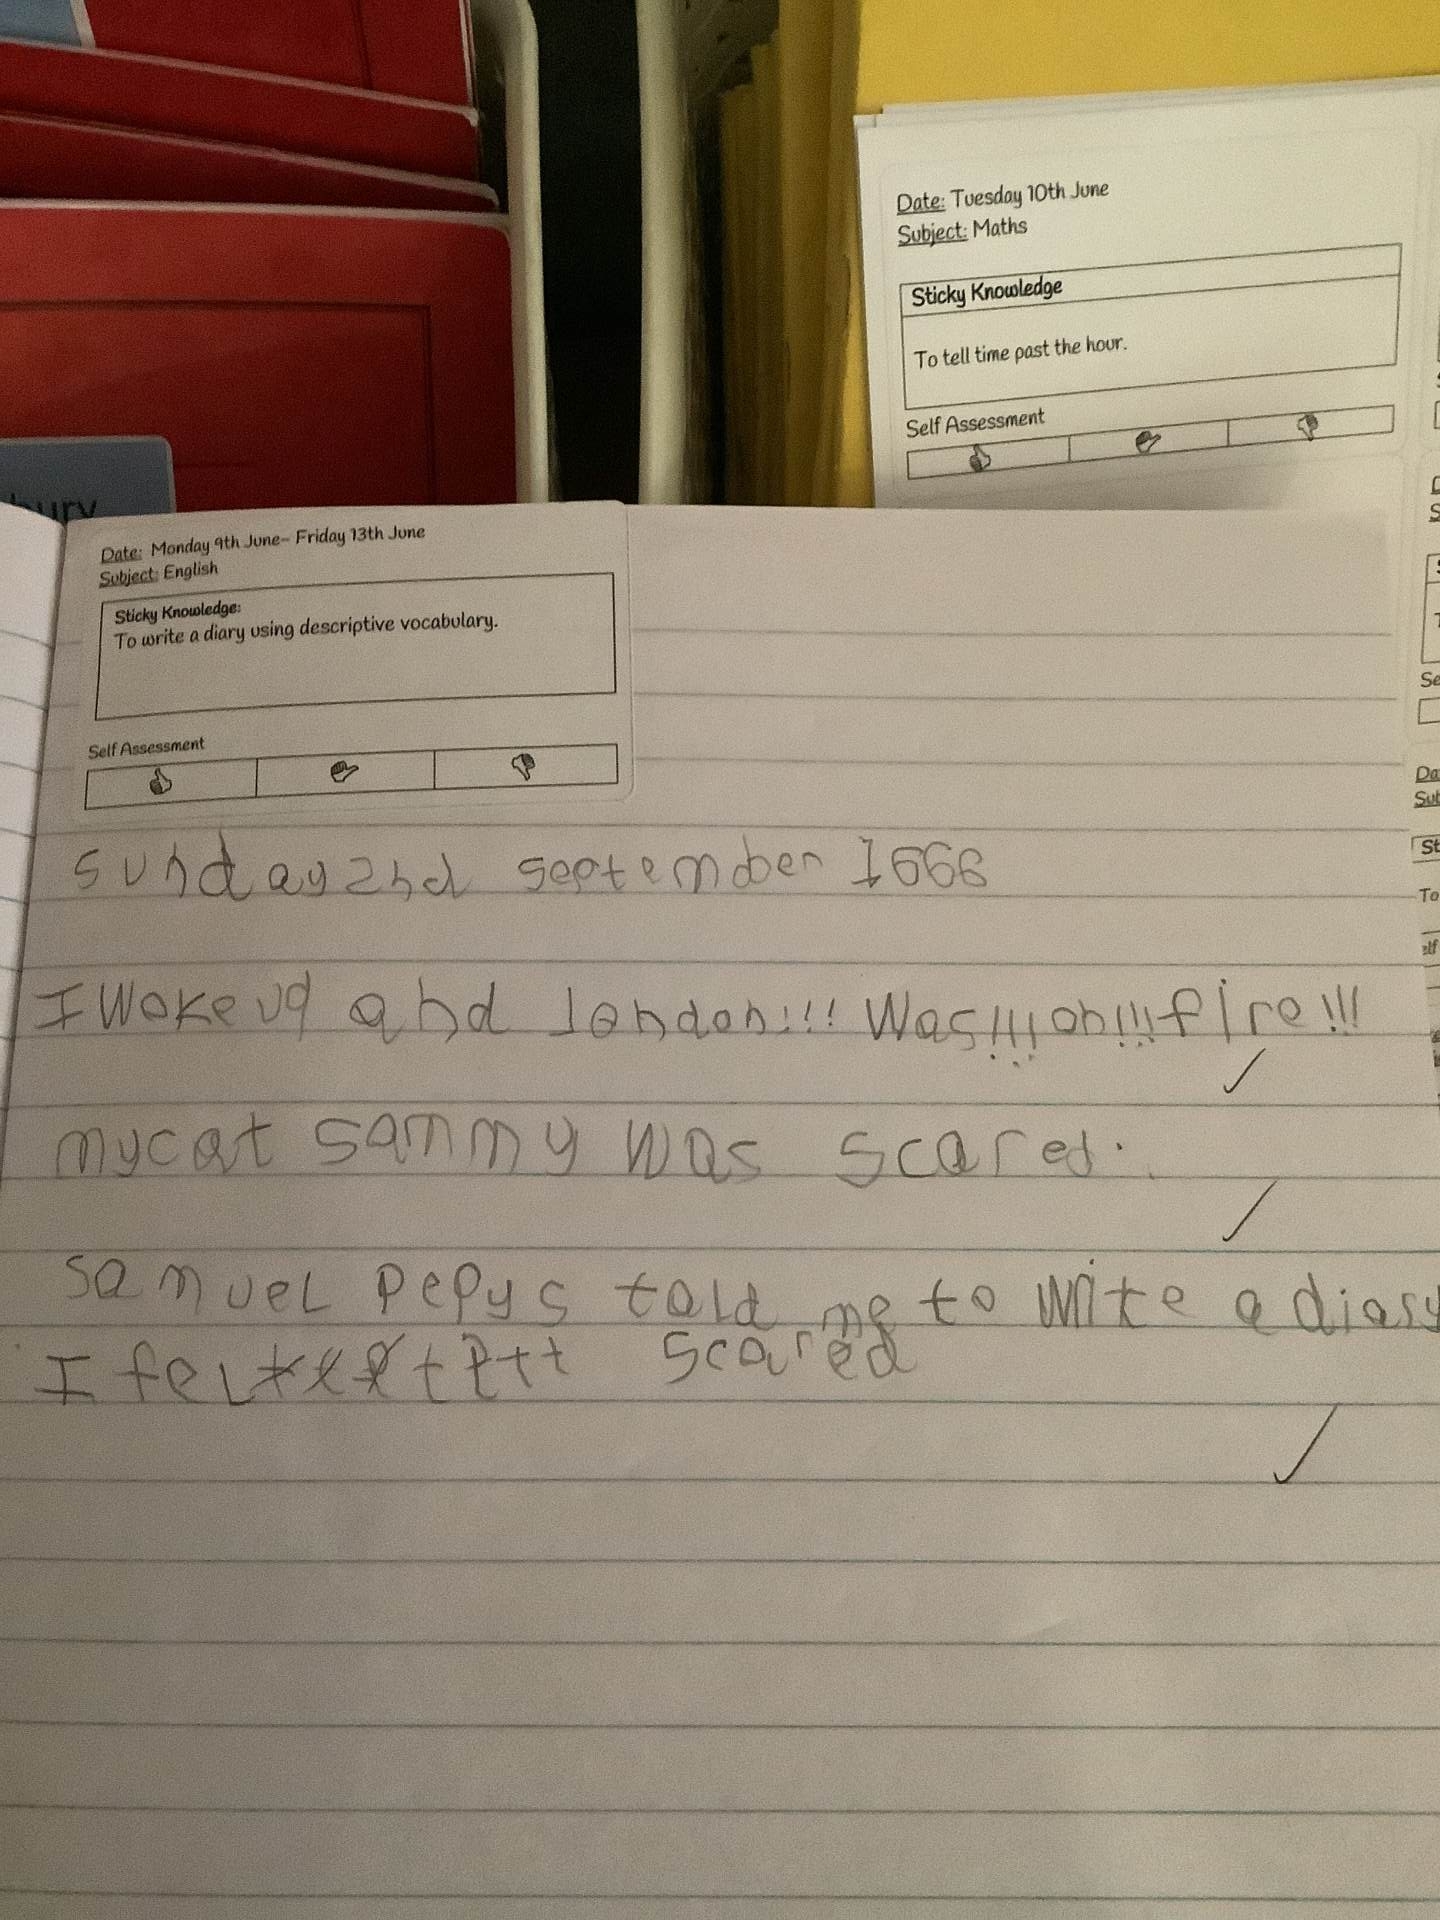 Date: Tuesday 10th June
Subject: Maths
Sticky Knowledge
To tell time past the hour.
Self Assessment
Date: Monday 9th June- Friday 13th June
Subject: English
Sticky Knowledge:
To write a diary using descriptive vocabulary.
Self Assessment
sunday 2nd september 1666
I woke up and london!!! was!!! on!!! fire!!!
my cat sammy was scared.
samuel pepys told me to write a diary
I felt scared